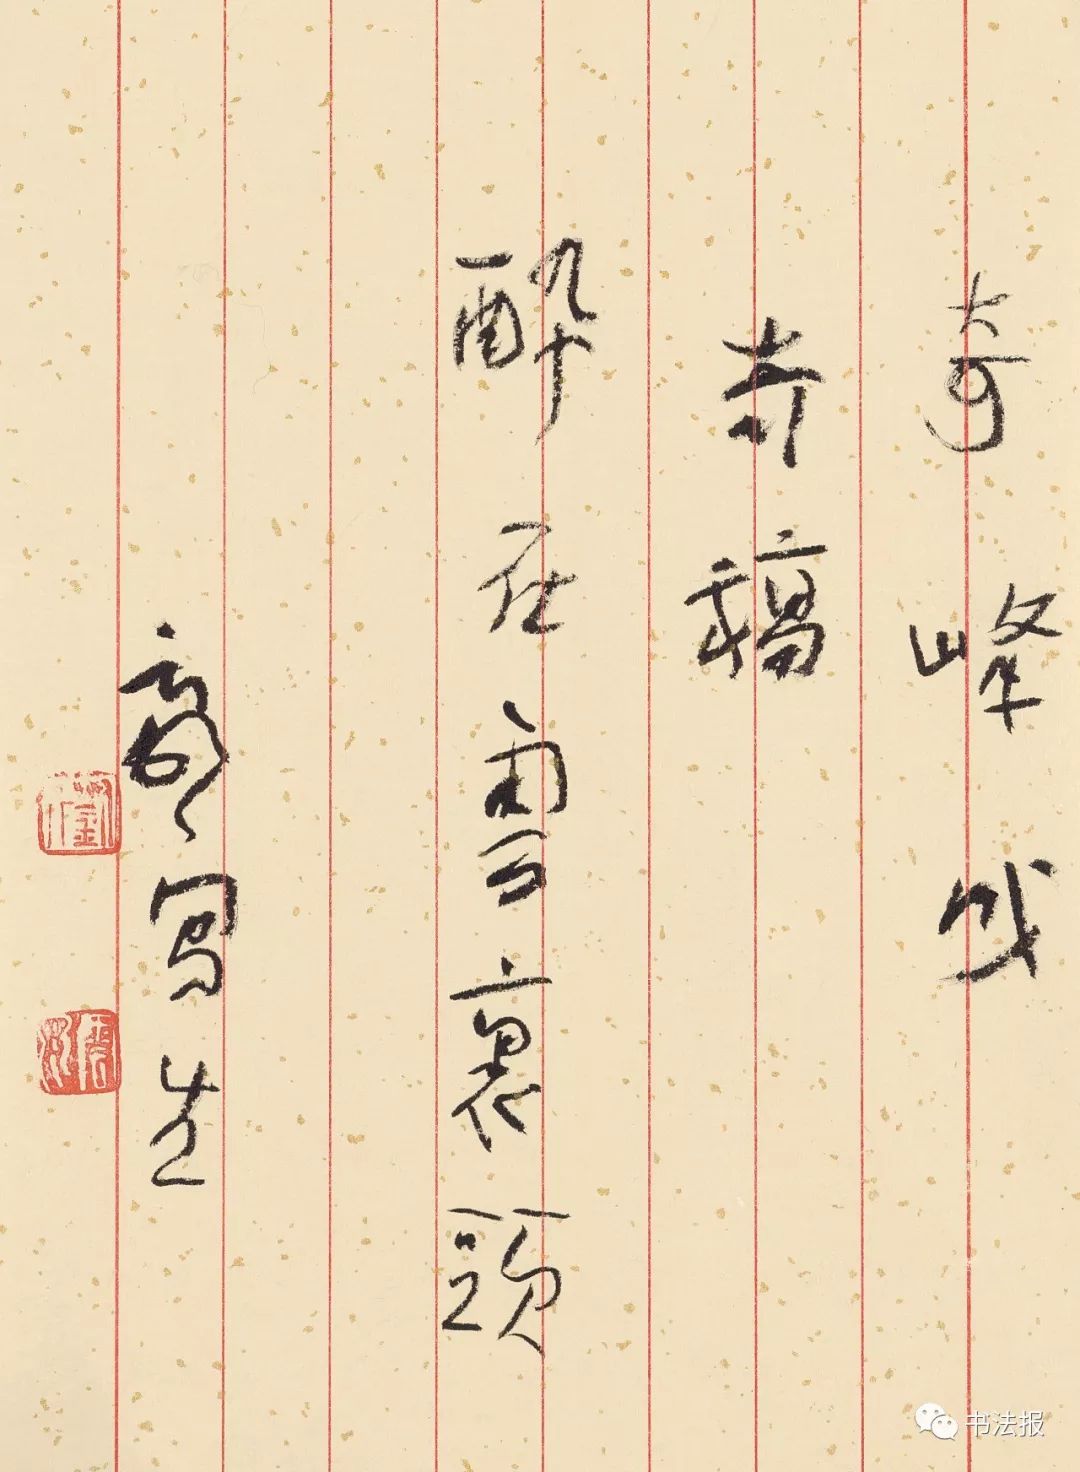 奇峰成
奇稿
醉在雪裏頭
寫生
书法报